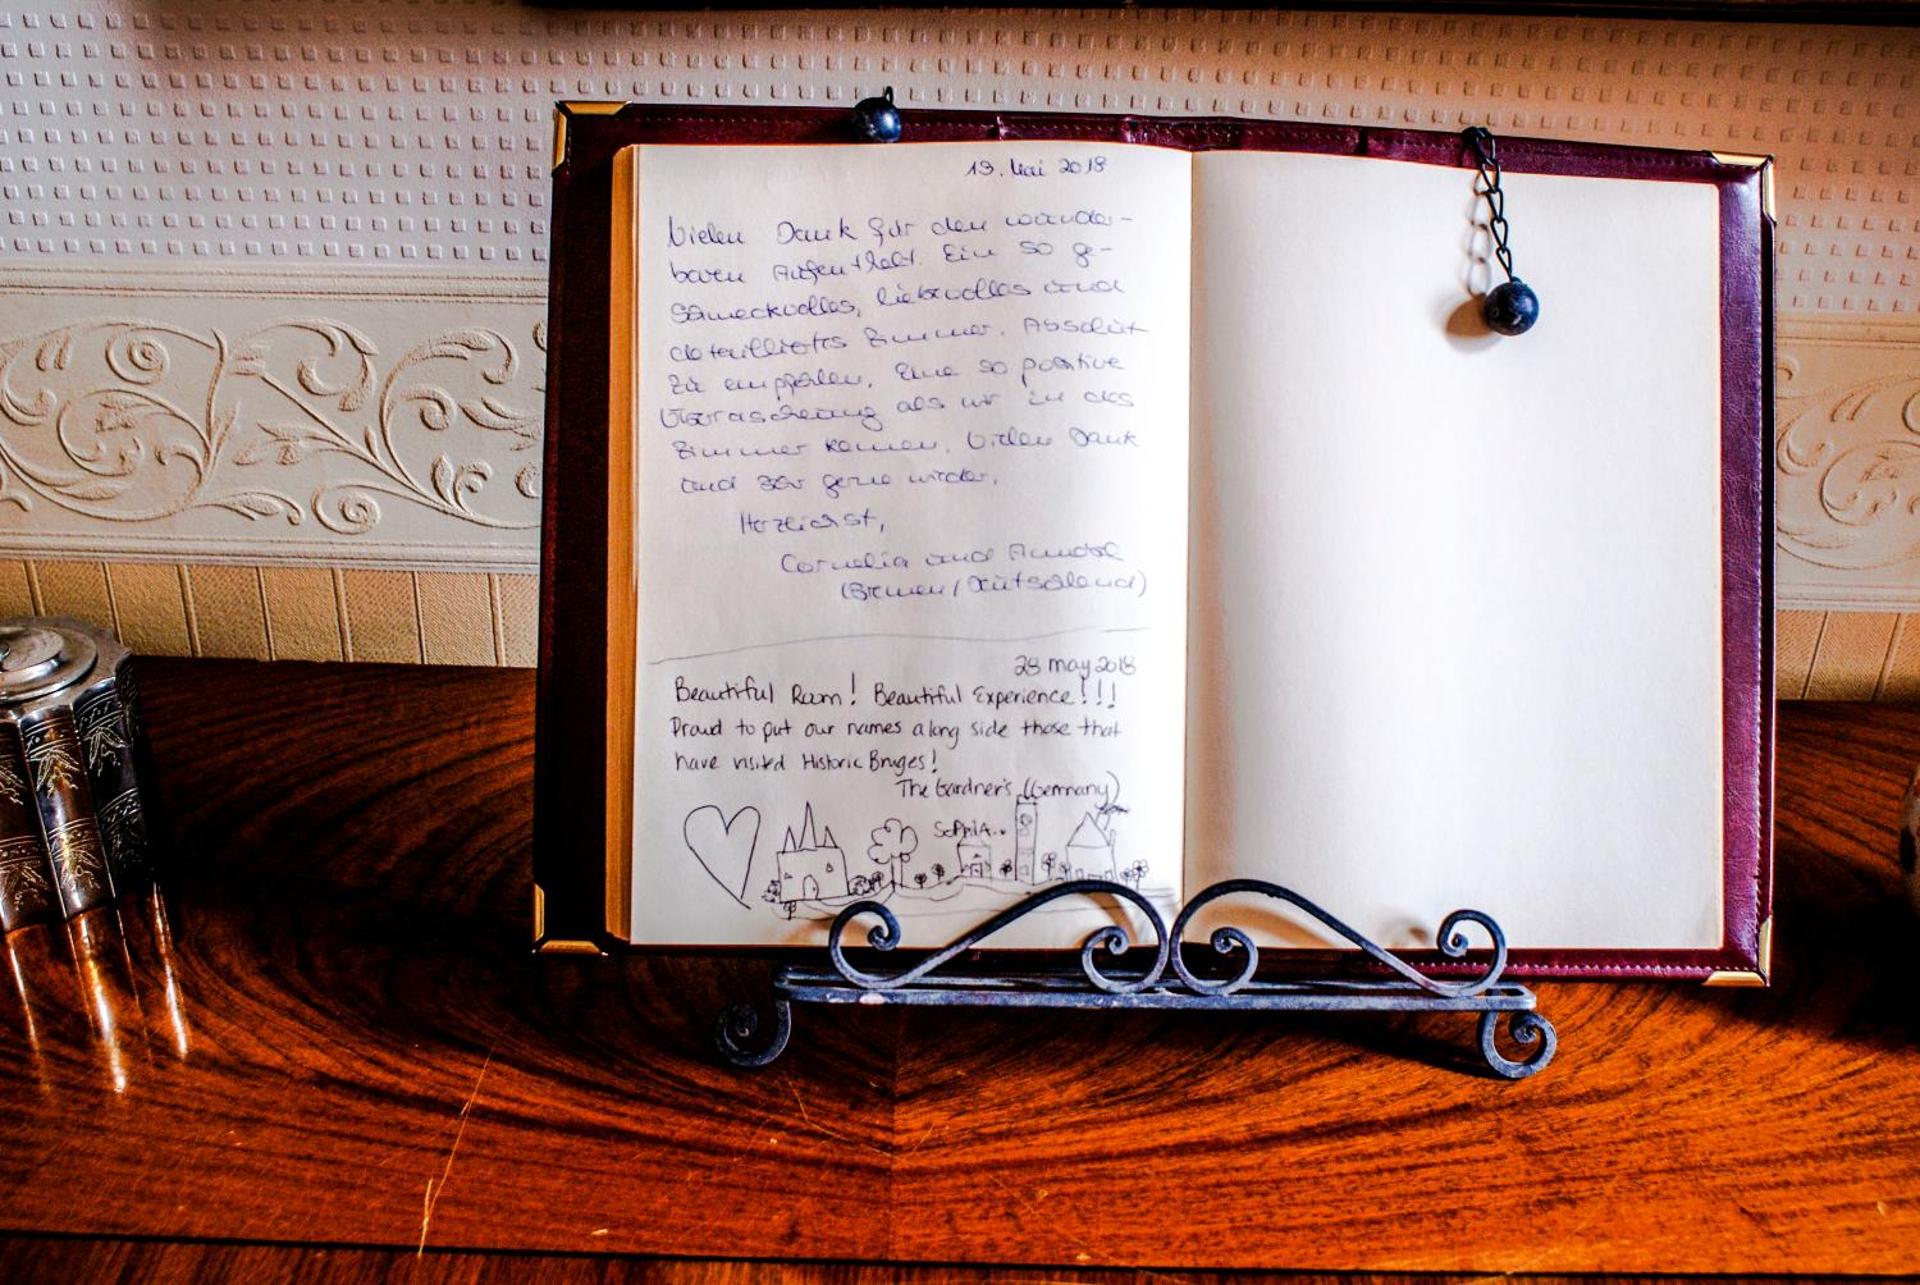 13. Mai 2018
Vielen Dank für den wunder-
baren Aufenthalt. Ein so ge-
schmackvolles, liebevolles und
detailliertes Zimmer. Absolut
zu empfehlen. Eine so positive
Überraschung als wir in das
Zimmer kamen. Vielen Dank
und sehr gerne wieder.
Herzlichst,
Cornelia und
(Bremen / Deutschland)
28 may 2018
Beautiful Room! Beautiful Experience!!!
Proud to put our names along side those that
have visited Historic Bruges!
The Gardner's (Germany)
SOPHIA..